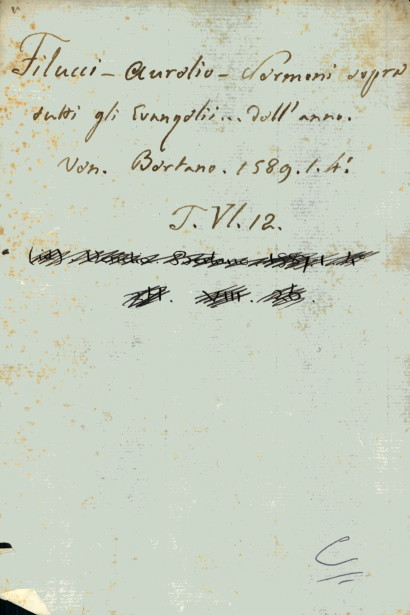 Filucci - Aurelio - Sermoni sopra
tutti gli Evangelii... dell'anno.
Ven. Bertano. 1589. 1. 4.º
T. VI. 12.
C